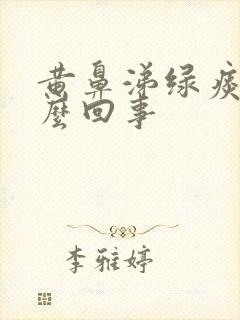 黄鼻涕绿痰
麼回事
李雅婷